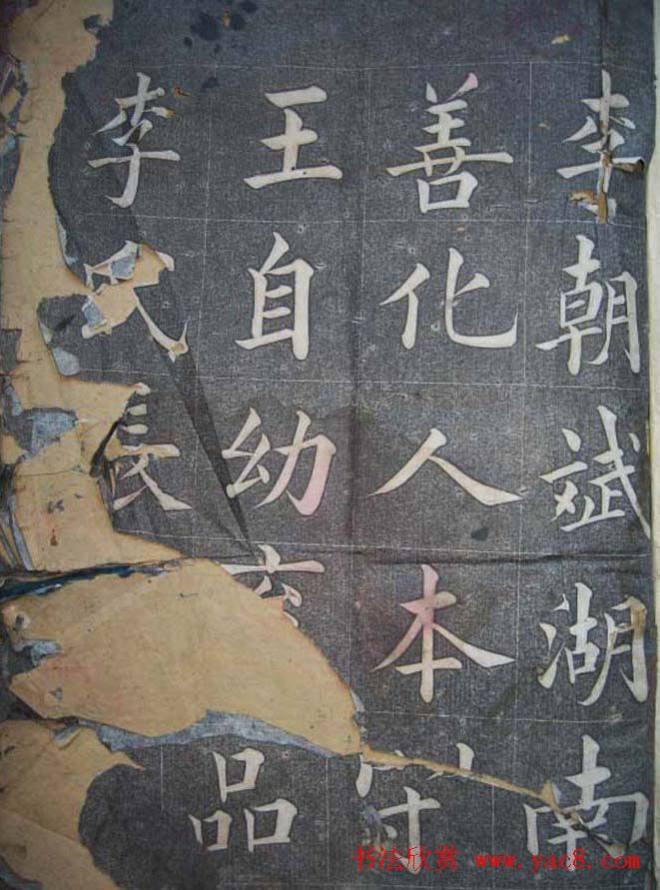 李朝斌湖南
善化人本
王自幼品
李氏長
书法欣赏 www.yac8.com